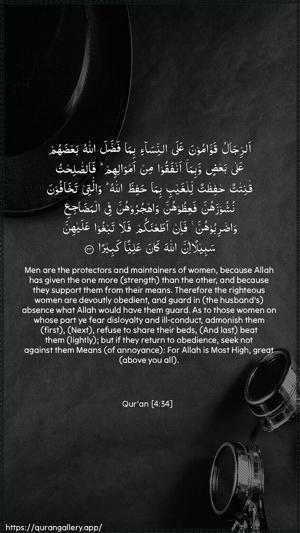 اَلرِّجَالُ قَوَّامُوْنَ عَلَى النِّسَآءِ بِمَا فَضَّلَ اللّٰهُ بَعْضَهُمْ
عَلٰى بَعْضٍ وَّبِمَاۤ اَنْفَقُوْا مِنْ اَمْوَالِهِمْ ؕ فَالصّٰلِحٰتُ
قٰنِتٰتٌ حٰفِظٰتٌ لِّلْغَيْبِ بِمَا حَفِظَ اللّٰهُ ؕ وَالّٰتِىْ تَخَافُوْنَ
نُشُوْزَهُنَّ فَعِظُوْهُنَّ وَاهْجُرُوْهُنَّ فِى الْمَضَاجِعِ
وَاضْرِبُوْهُنَّ ۚ فَاِنْ اَطَعْنَكُمْ فَلَا تَبْغُوْا عَلَيْهِنَّ
سَبِيْلًا اِنَّ اللّٰهَ كَانَ عَلِيًّا كَبِيْرًا ﴿۳۴﴾
Men are the protectors and maintainers of women, because Allah
has given the one more (strength) than the other, and because
they support them from their means. Therefore the righteous
women are devoutly obedient, and guard in (the husband's)
absence what Allah would have them guard. As to those women on
whose part ye fear disloyalty and ill-conduct, admonish them
(first), (Next), refuse to share their beds, (And last) beat
them (lightly); but if they return to obedience, seek not
against them Means (of annoyance): For Allah is Most High, great
(above you all).
Qur'an [4:34]
https://qurangallery.app/